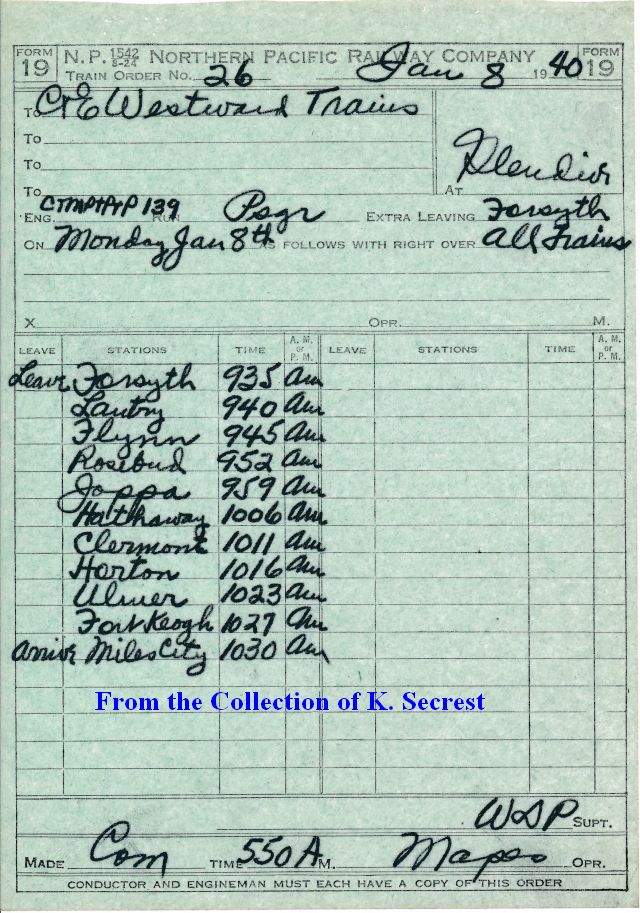 FORM 19 N. P. 1542 8-24 NORTHERN PACIFIC RAILWAY COMPANY FORM 19
TRAIN ORDER No. 26 Jan 8 1940
To C&E Westward Trains
To
To
To
AT Glendive
ENG. CTMPHP 139 RUN Psgr EXTRA LEAVING Forsyth
ON Monday Jan 8th AS FOLLOWS WITH RIGHT OVER All Trains
X OPR. M.
LEAVE STATIONS TIME A. M. or P. M. LEAVE STATIONS TIME A. M. or P. M.
Leave Forsyth 935 am
940 am
Flynn 945 am
Rosebud 952 am
Joppa 959 am
Hathaway 1006 am
Clermont 1011 am
Horton 1016 am
Ulmer 1023 am
Fort Keogh 1027 am
Arrive Miles City 1030 am
From the Collection of K. Secrest
WSP SUPT.
MADE Com TIME 550 A M. Mapes OPR.
CONDUCTOR AND ENGINEMAN MUST EACH HAVE A COPY OF THIS ORDER